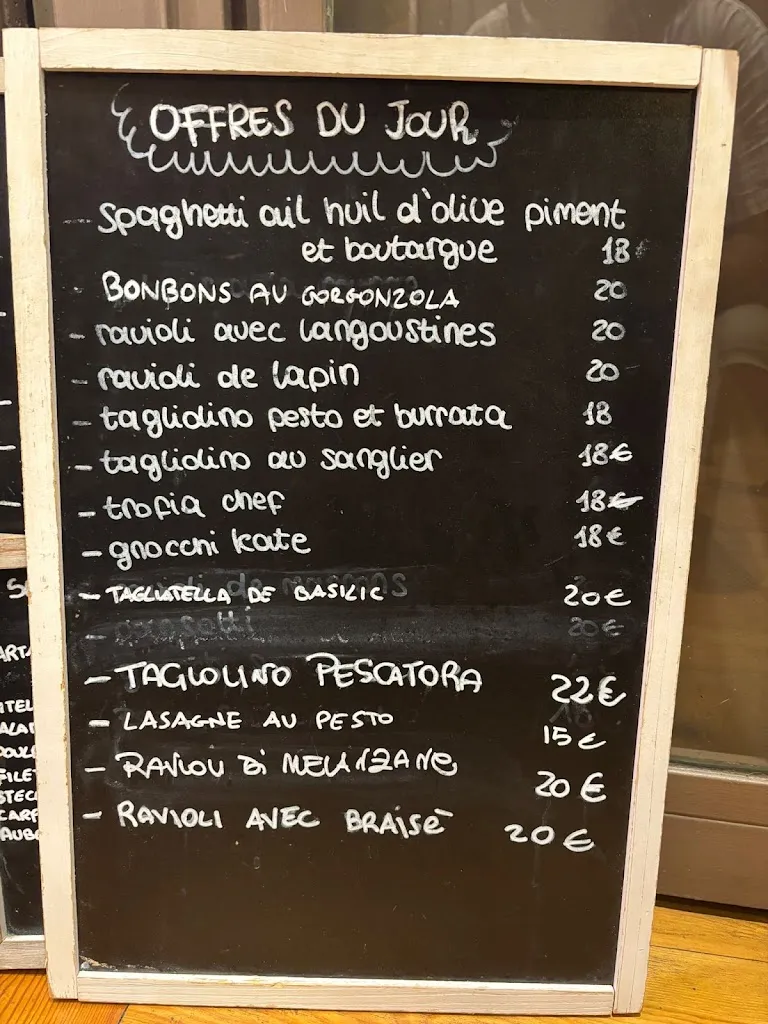 OFFRES DU JOUR
- spaghetti ail huil d'olive piment
et boutargue 18€
BONBONS AU GORGONZOLA 20
- ravioli avec langoustines 20
- ravioli de lapin 20
- tagliolino pesto et burrata 18
- tagliolino au sanglier 18€
- trofia chef 18€
- gnocchi kate 18€
- TAGLIATELLA DE BASILIC 20€
- TAGLOLINO PESCATORA 22€
- LASAGNE AU PESTO 15€
- RAVIOLI DI MELANZANE 20€
- RAVIOLI AVEC BRAISÈ 20€